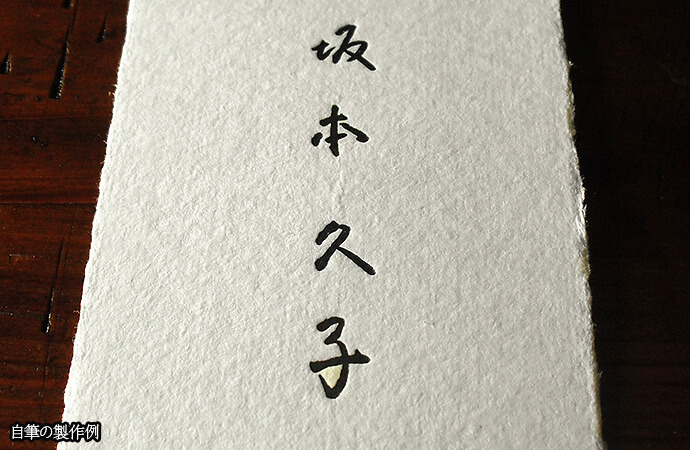 坂本久子
自筆の製作例